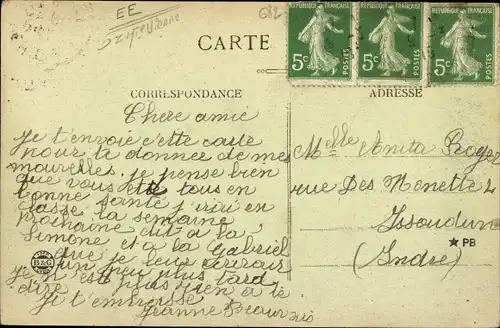 EE
St Etienne
CARTE
RÉPUBLIQUE FRANÇAISE
5c
POSTES
RÉPUBLIQUE FRANÇAISE
5c
POSTES
RÉPUBLIQUE FRANÇAISE
5c
POSTES
CORRESPONDANCE
ADRESSE
Chere amie
Je t'envoie cette carte
pour te donnee de mes
nouvelles. je pense bien
que vous ete tous en
bonne santé j'irai en
classe la semaine
prochaine dit a la
Simone et a la Gabriel
que je leur écrirais
un peu plus tard
je puis rien a te
dire
Je t'embrasse
Jeanne
B&G
Melle Anita Roger
rue Des Menettes
Issoudun
(Indre)
★ PB